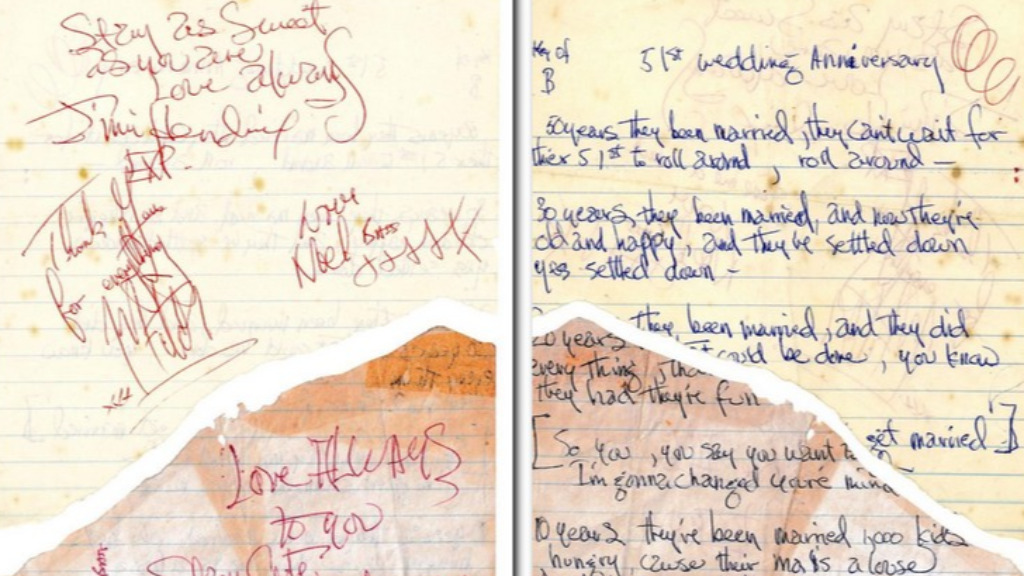 Stay as Sweet
as you are
Love always
Jimi Hendrix
EXP.
Thank you
for everything
Mitch
Love
Noel Bass
xxxx
Love ALWAYS
to you
Key of
B
51st wedding Anniversary
50 years they been married, they can't wait for
their 51st to roll around, roll around —
30 years, they been married, and now they're
old and happy, and they've settled down
yes settled down —
20 years they been married, and they did
every thing, that could be done, you know
they had they're fun
[So you, you say you want to get married]
I'm gonna changed you're mind
10 years they've been married 1,000 kids
hungry cause their ma is a louse